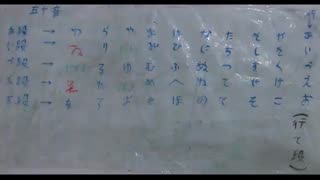 五十音
行
あ段 → わ ら や ま は な た さ か あ
い段 → ゐ り み ひ に ち し き い
う段 → る ゆ む ふ ぬ つ す く う
え段 → ゑ れ め へ ね て せ け え
お段 → を ろ よ も ほ の と そ こ お
(行と段)